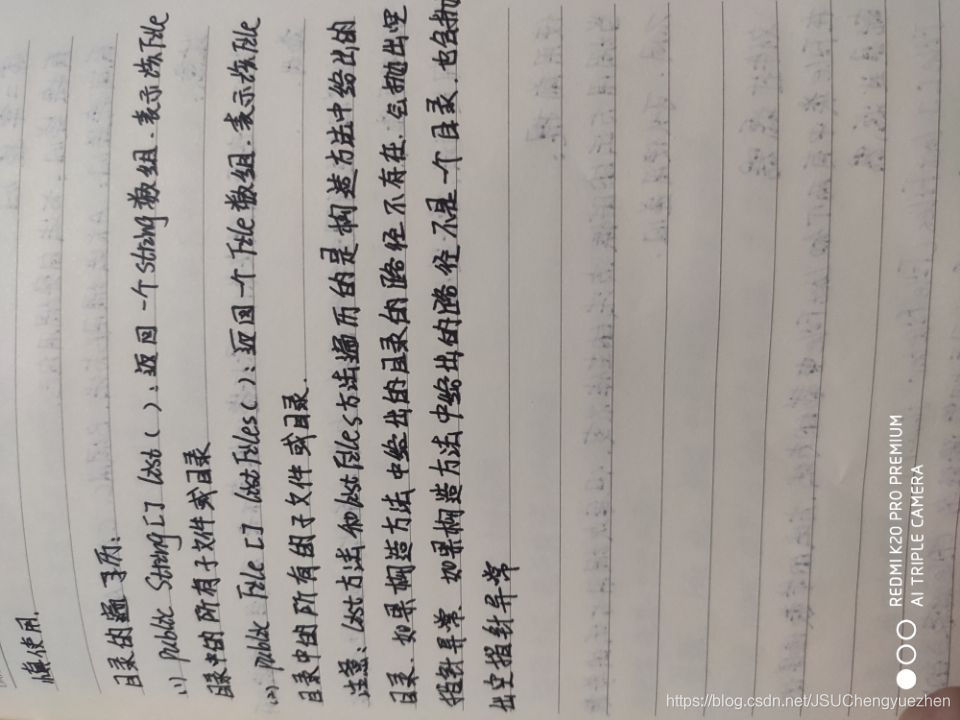 慎使用.
目录的遍历:
(1) public String[] list():返回一个String数组.表示该File
目录中的所有子文件或目录
(2) public File[] listFiles():返回一个File数组.表示该File
目录中的所有的子文件或目录.
注意:list方法和listFiles方法遍历的是构造方法中给出的
目录.如果构造方法中给出的目录的路径不存在.会抛出空
指针异常.如果构造方法中给出的路径不是一个目录.也会抛
出空指针异常
REDMI K20 PRO PREMIUM
AI TRIPLE CAMERA
https://blog.csdn.net/JSUChengyuezhen